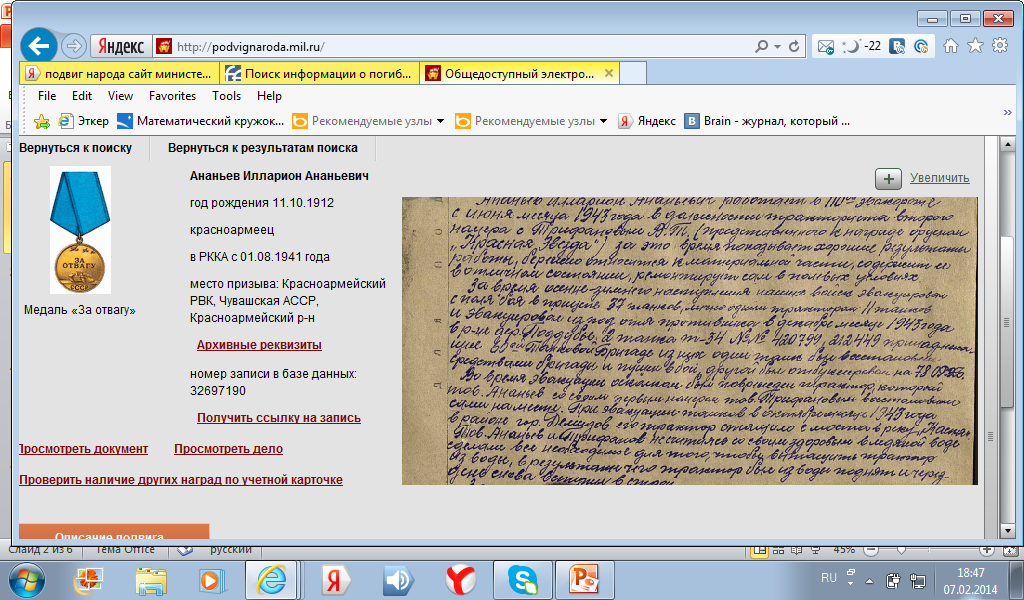 Яндекс
http://podvignaroda.mil.ru/
-22
подвиг народа сайт министе...
Поиск информации о погиб...
Общедоступный электро...
File Edit View Favorites Tools Help
Эткер
Математический кружок...
Рекомендуемые узлы
Рекомендуемые узлы
Яндекс
Brain - журнал, который ...
Вернуться к поиску
Вернуться к результатам поиска
ЗА ОТВАГУ
СССР
Медаль «За отвагу»
Ананьев Илларион Ананьевич
год рождения 11.10.1912
красноармеец
в РККА с 01.08.1941 года
место призыва: Красноармейский
РВК, Чувашская АССР,
Красноармейский р-н
Архивные реквизиты
номер записи в базе данных:
32697190
Получить ссылку на запись
Просмотреть документ
Просмотреть дело
Проверить наличие других наград по учетной карточке
Описание подвига
Увеличить
Ананьев Илларион Ананьевич работает в
с июня месяца 1943 года в должности тракториста второго
номера с Трифановым А.Т. (представленного к награде орденом
„Красная Звезда") за это время показывает хорошие результаты
работы, бережно относится к материальной части, содержит её
в отличном состоянии, ремонтирует сам в полевых условиях.
За время осенне-зимнего наступления наших войск эвакуировал
с поля боя в 37 танков, лично одним трактором 11 танков
и эвакуировал из под огня противника в декабре месяце 1943 года
в р-не дер. Поддубье, 2 танка Т-34 №№ 420799, 212449 принадлежа-
щие Танковой Бригаде из них один танк был восстановлен
средствами бригады и пущен в бой, другой был отбуксирован на
Во время эвакуации осколком был поврежден трактор, который
тов. Ананьев со своим первым номером тов. Трифановым восстановили
сами на месте. При эвакуации танков в октябре месяце 1943 года
в районе гор. Демидов его трактор с моста в реку
Тов. Ананьев и Трифанов не считаясь со своим здоровьем в ледяной воде
сделали все необходимое для того, чтобы вытащить трактор
из воды, в результате чего трактор был из воды поднят и через
снова вступил в строй
Слайд 2 из 6
Тема Office
русский
45%
RU
18:47
07.02.2014